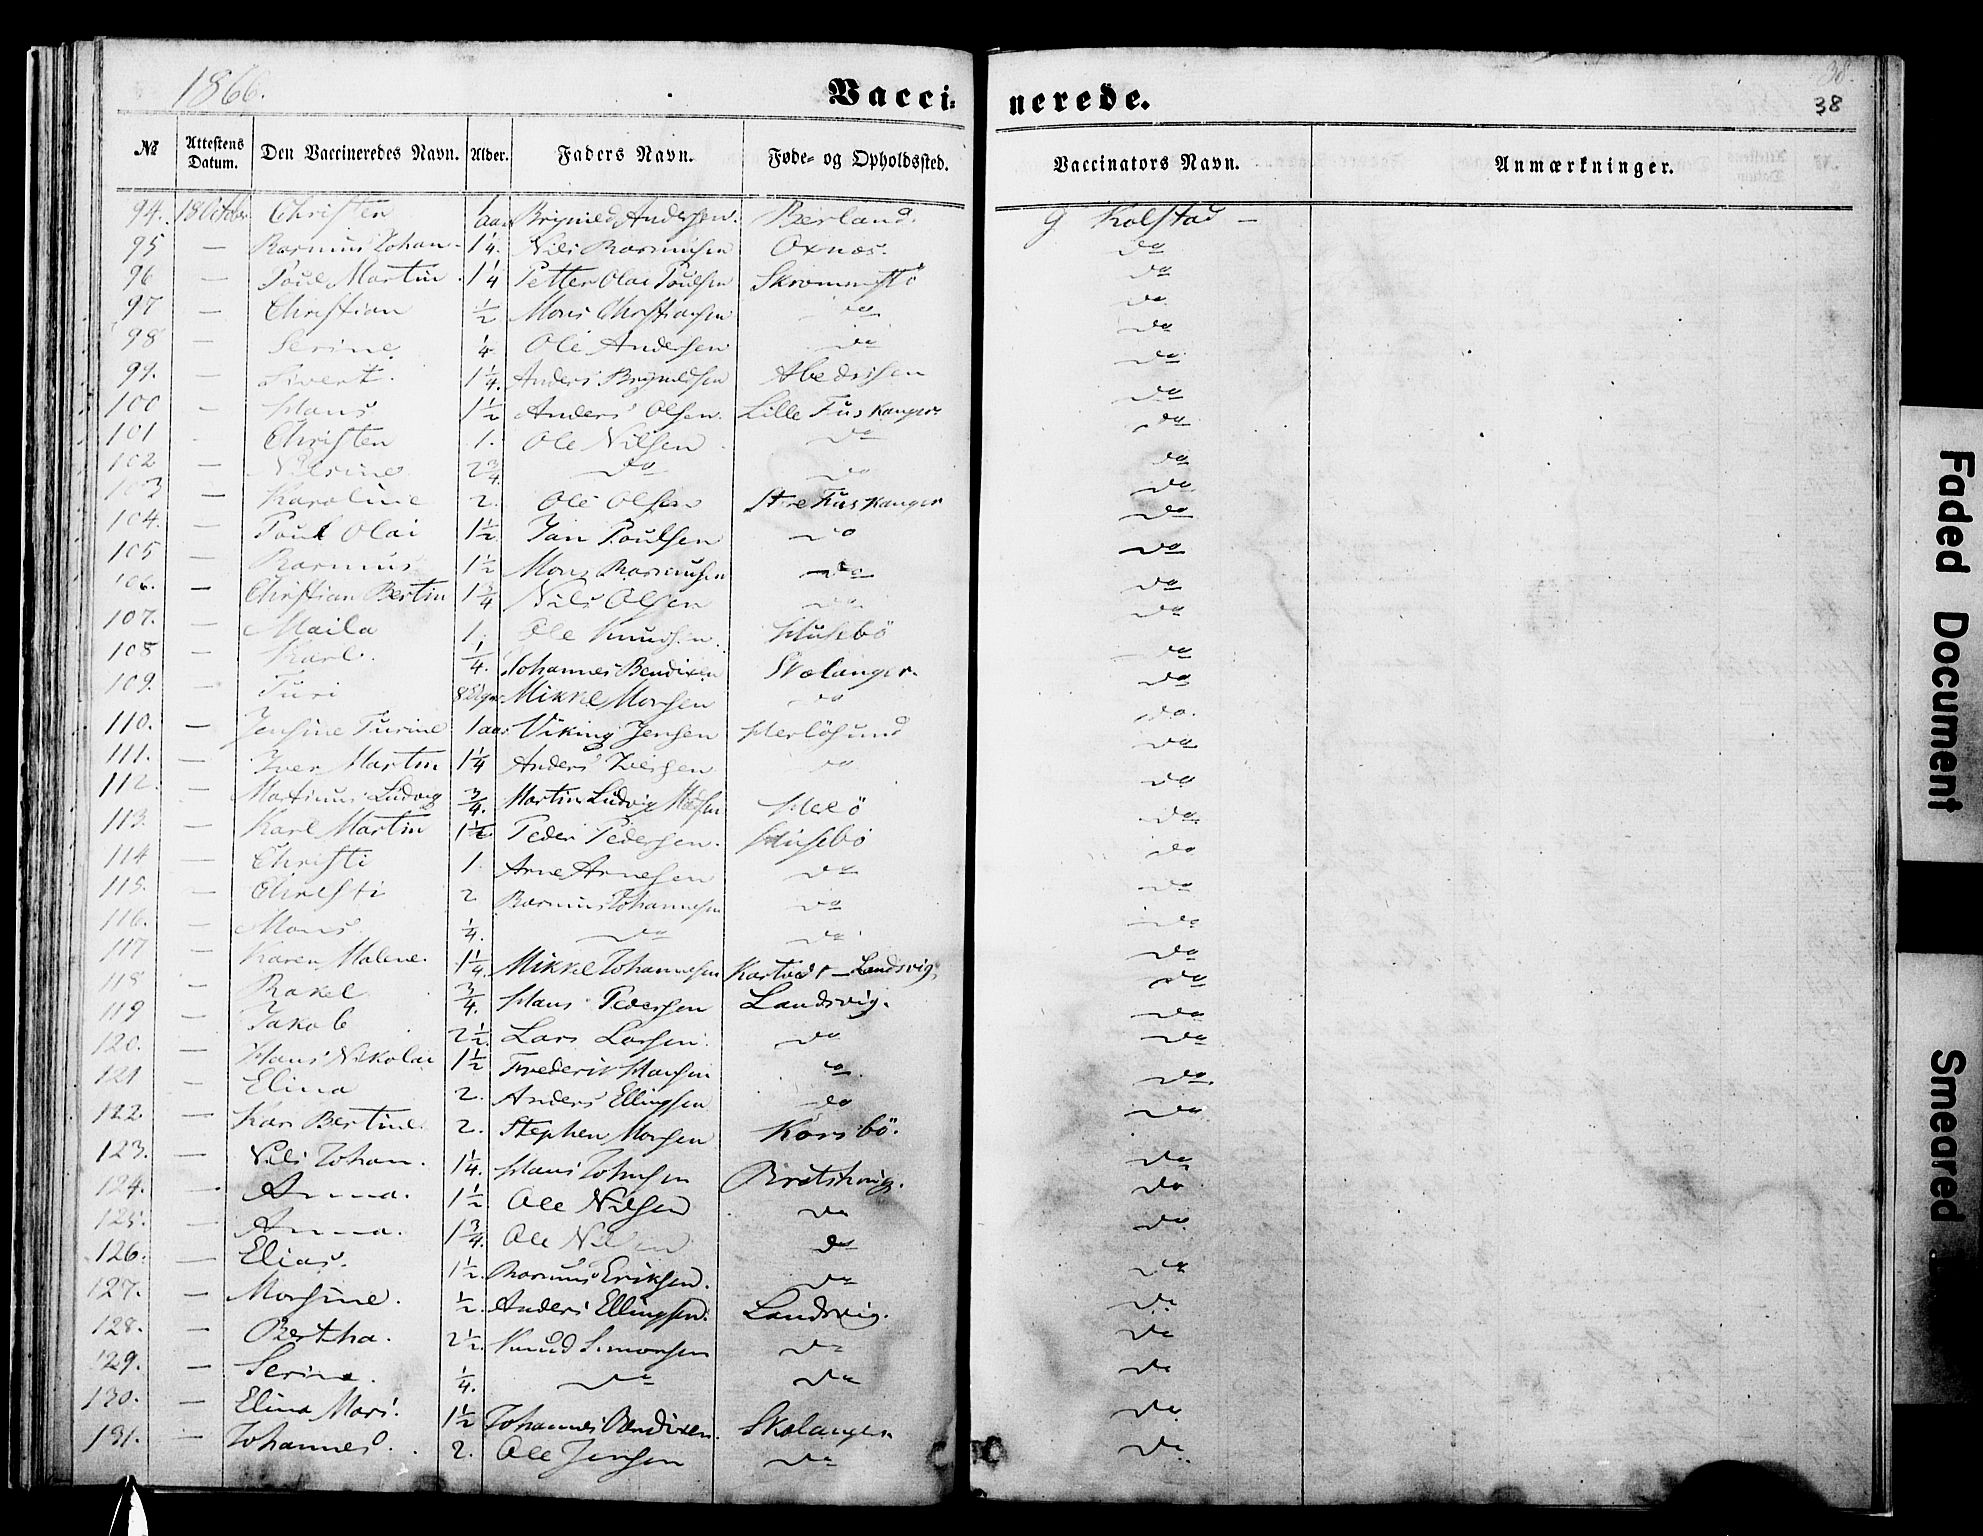 1866.
Vacci-
nerede.
38.
38
No Attestens Datum. Den Vaccineredes Navn. Alder. Faders Navn. Føde- og Opholdssted. Vaccinators Navn. Anmærkninger.
94. 18 October Christen 1 aar Brynild Andersen. Berland. G Kolstad —
95 — Rasmus Johan 1¼. Nils Rasmusen Oxnæs. do
96 — Poul Martin 1¼ Petter Olai Poulsen Skrommesø do
97 — Christian ½ Mons Christiansen do do
98 — Serine ¼ Ole Andersen do do
99. — Sivert. 1¼. Anders Brynildsen do
100 — Hans 1½ Anders Olsen. Lille Fuskanger do
101 Christen 1. Ole Nilsen do do
102 — Nilsine 2¾ do do do
103 — Karoline 2. Ole Olsen Store Fuskanger do
104. — Poul Olai 1½ Jan Poulsen do do
105 — Rasmus 1½ Mons Rasmusen do do
106. — Christian Bertin 1¾ Nils Olsen do do
107. — Maila 1. Ole Knudsen Husebö do
108 — Karl. ¼. Johannes Bendixen Skolanger. do
109. — Turi Mikkel Monsen do do
110. — Jensine Turine 1 aar Viking Jensen Herlösund do
111. — Iver Martin 1¼ Anders Iversen do do
112. — Martinus Ludvig ¾. Martin Ludvig do
113. — Karl Martin 1½ Peder Pedersen. Husebö do
114 — Christi 1. Arne Arnesen do do
115. — Christi 2 Rasmus Johannesen do do
116. — Mons. ¼. do do do
117 — Karen Malene. 1¼. Mikkel Johannesen Landsvig. do
118 — Rakel ¾. Hans Pedersen Landsvig. do
119 — Jakob 2½. Lars Larsen. do do
120. — Hans Nikolai 1½ Frederik Hansen do do
121 — Elina 2. Anders Ellingsen do do
122. — Kari Bertine. 2. Stephen Monsen Korsbö. do
123. — Nils Johan. 1¼. Hans Johnsen Bratshoug. do
124. Anna. 1½ Ole Nilsen do do
125. — Anna. 1¾. Ole Nilsen do do
126. — Elias. 1½. Rasmus Eriksen. do do
127. — Monsine. ½. Anders Ellingsen. Landsvig. do
128. — Bertha. 2½. Knud Simonsen do do
129. — Serine. ¼. do do do
130. — Elina Mari. 1½ Johannes Bendixen. Skolanger do
131. — Johannes. 2. Ole Jensen do do
Faded Document
Smeared